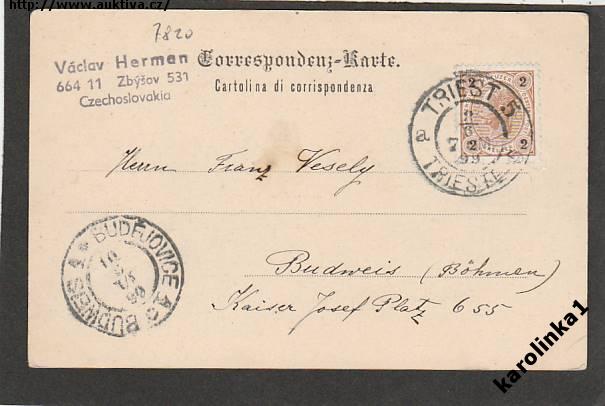 http://www.auktiva.cz/
7820
Václav Herman
664 11 Zbýšov 531
Czechoslovakia
Correspondenz-Karte.
Cartolina di corrispondenza
2 2
2 2
TRIEST 5
a
7
99
TRIESTE
Herrn Franz Vesely
BUDĚJOVICE 1
BUDWEIS 1
10
99
Budweis (Böhmen)
Kaiser Josef Platz 655
karolinka1